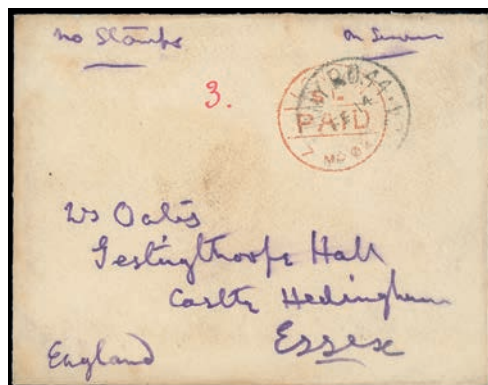 No Stamps
On Service
3.
PAID
Ws Oates
Gestingthorpe Hall
Castle Hedingham
Essex
England